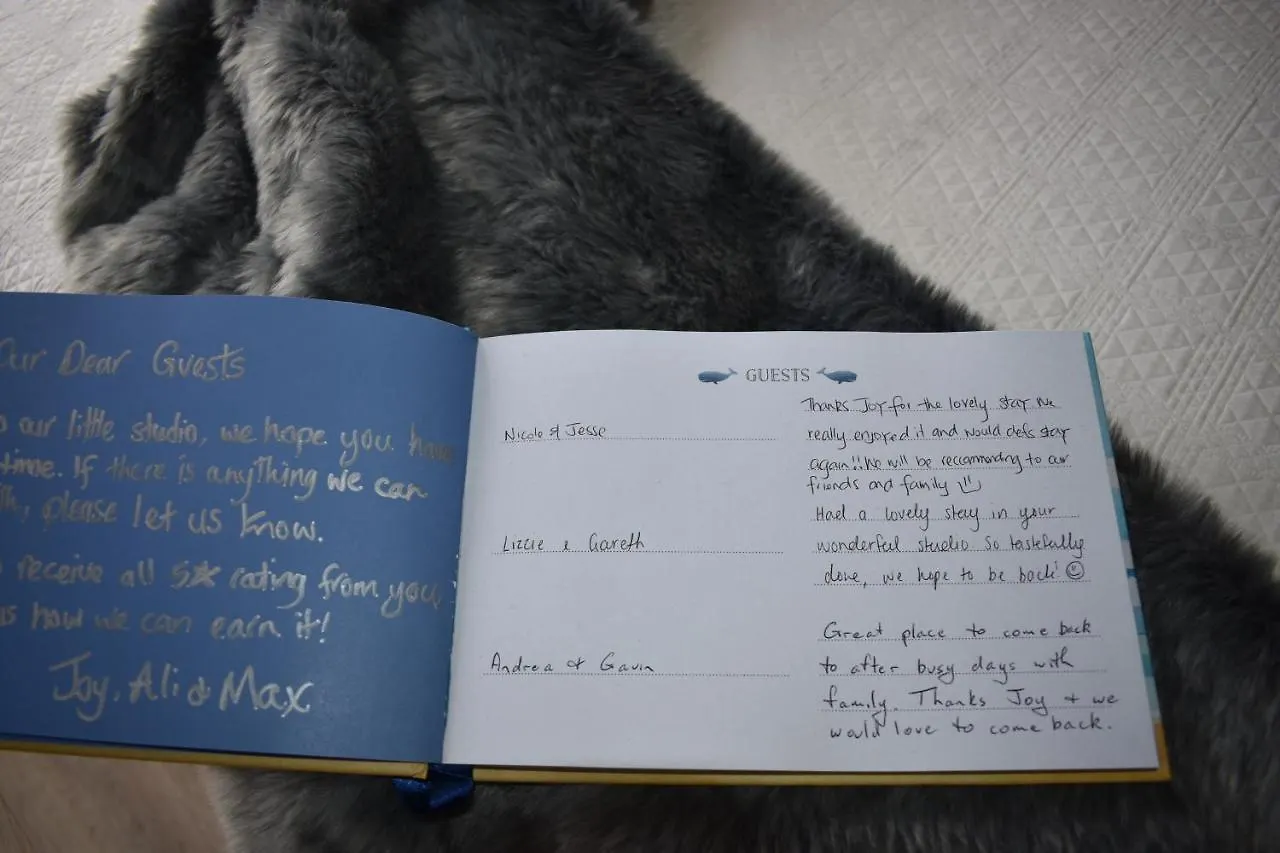 Our Dear Guests
our little studio, we hope you have
time. If there is anything we can
please let us know.
receive all 5★ rating from you,
us how we can earn it!
Joy, Ali & Max
GUESTS
Nicole & Jesse
Thanks Joy for the lovely stay. We
really enjoyed it and would defs stay
again!! We will be reccommending to our
friends and family
Lizzie & Gareth
Had a lovely stay in your
wonderful studio so tastefully
done, we hope to be back! ☺
Andrea & Gavin
Great place to come back
to after busy days with
family. Thanks Joy + we
would love to come back.